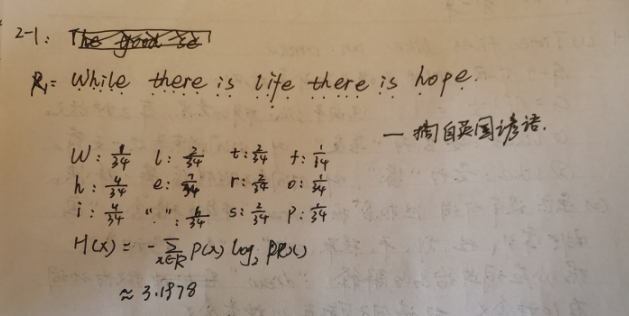 2-1:
R₁= While there is life there is hope.
— 摘自英国谚语.
W: 1/34 l: 2/34 t: 2/34 f: 1/34
h: 4/34 e: 7/34 r: 2/34 o: 1/34
i: 4/34 " ": 6/34 s: 2/34 p: 1/34
H(x) = - Σ x∈R P(x) log₂ P(x)
≈ 3.1978